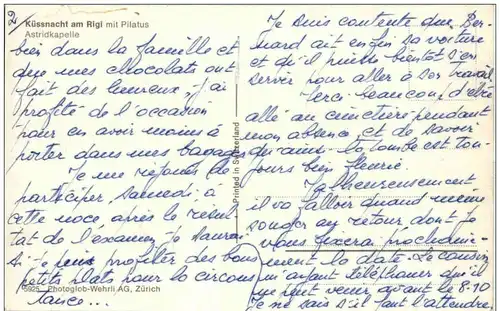 2/
Küssnacht am Rigi mit Pilatus
Astridkapelle
bien dans la famille et
que mes chocolats ont
fait des heureux, j'ai
profité de l'occasion
pour en avoir moins à
porter dans mes bagages
Je me réjouis de
participer, samedi, à
cette noce après le résul-
tat de l'examen je saurai
si je peux profiter des bons
petits plats pour la circons
tance...
5925 Photoglob-Wehrli AG, Zürich
Printed in Switzerland
Je suis contente que Ber-
nard ait enfin sa voiture
et qu'il puisse bientôt s'en
servir pour aller à son travail
Merci beaucoup d'être
allé au cimetière pendant
mon absence et de savoir
qu'ainsi la tombe est tou-
jours bien fleurie.
Malheureusement
il va falloir quand même
songer au retour dont je
vous fixerai prochaine-
ment la date. Le cousin
m'ayant téléphoner qu'il
ne peut venir avant le 8.10
Je ne sais s'il faut l'attendre.